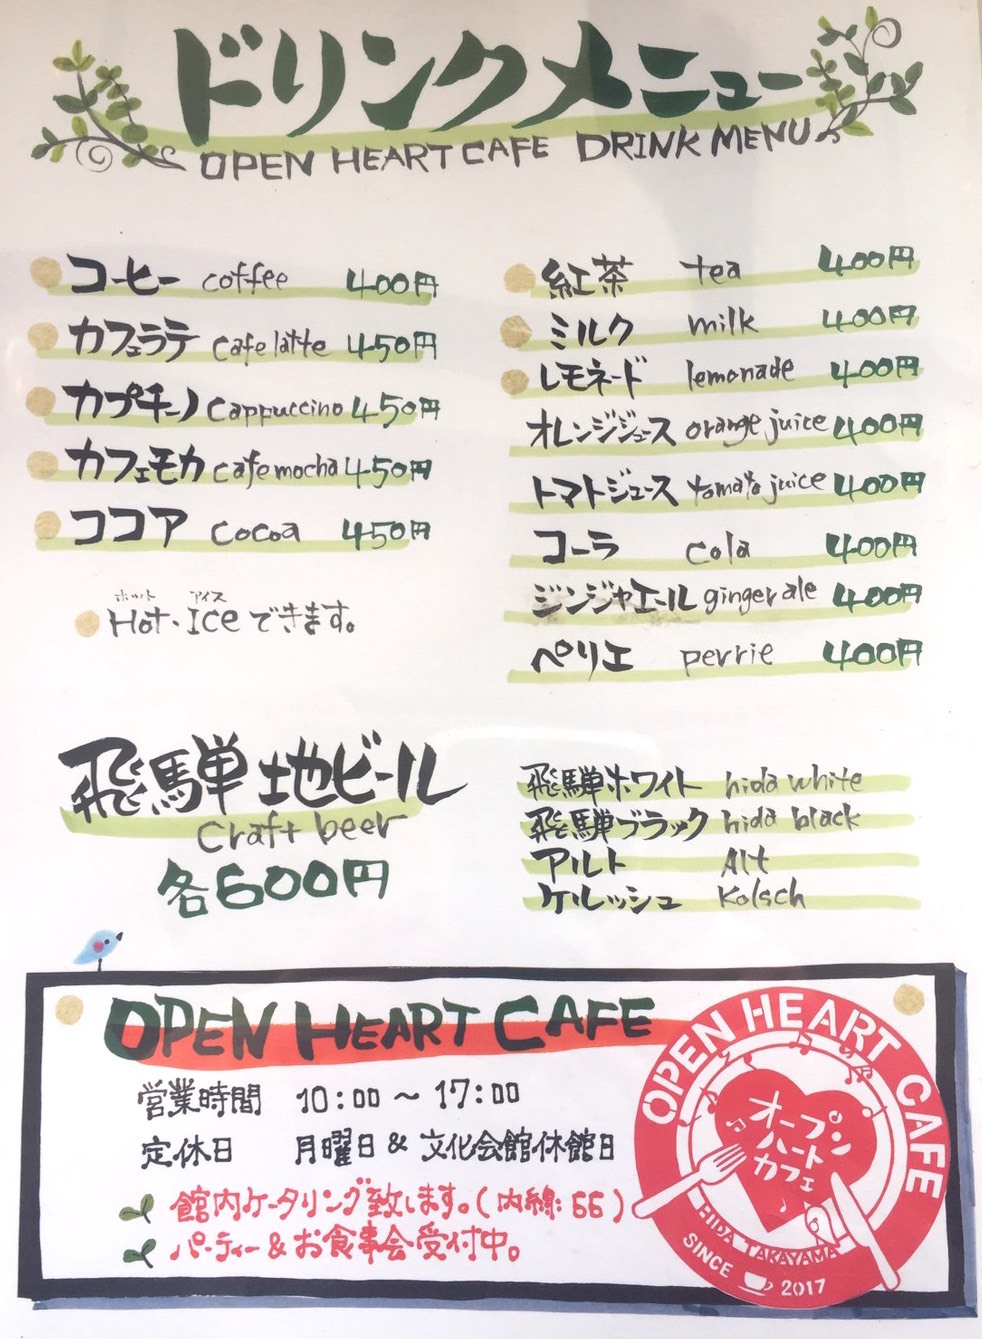 ドリンクメニュー
OPEN HEART CAFE DRINK MENU
コーヒー coffee 400円
カフェラテ cafe latte 450円
カプチーノ cappuccino 450円
カフェモカ cafe mocha 450円
ココア cocoa 450円
ホット アイス
Hot・Iceできます。
紅茶 tea 400円
ミルク milk 400円
レモネード lemonade 400円
オレンジジュース orange juice 400円
トマトジュース tomato juice 400円
コーラ cola 400円
ジンジャエール ginger ale 400円
ペリエ perrie 400円
飛騨地ビール
craft beer
各600円
飛騨ホワイト hida white
飛騨ブラック hida black
アルト Alt
ケルッシュ Kolsch
OPEN HEART CAFE
営業時間 10:00〜17:00
定休日 月曜日&文化会館休館日
館内ケータリング致します。(内線:66)
パーティー&お食事会受付中。
OPEN HEART CAFE
オープン
ハート
カフェ
HIDA TAKAYAMA
SINCE 2017